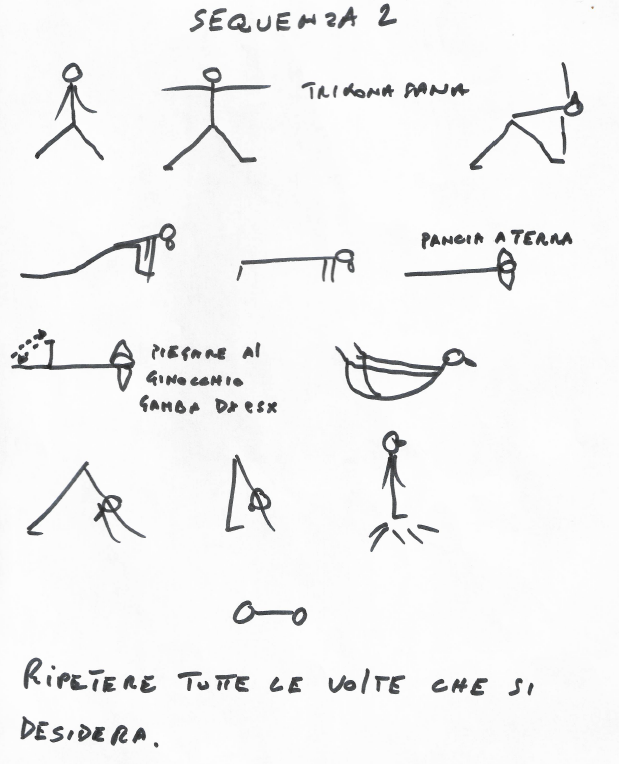 SEQUENZA 2
TRIKONASANA
PANCIA A TERRA
PIEGARE AL
GINOCCHIO
GAMBA DX E SX
RIPETERE TUTTE LE VOLTE CHE SI
DESIDERA.